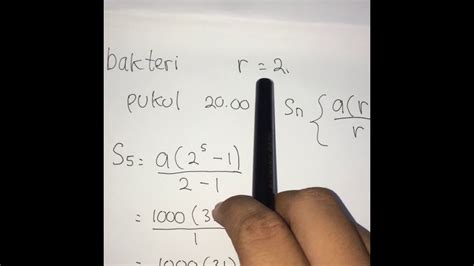 bakteri r = 2.
pukul 20.00 Sn { a(r / r
S5 = a(2^5 - 1) / 2 - 1
= 1000 (3 / 1
= 1000(31)